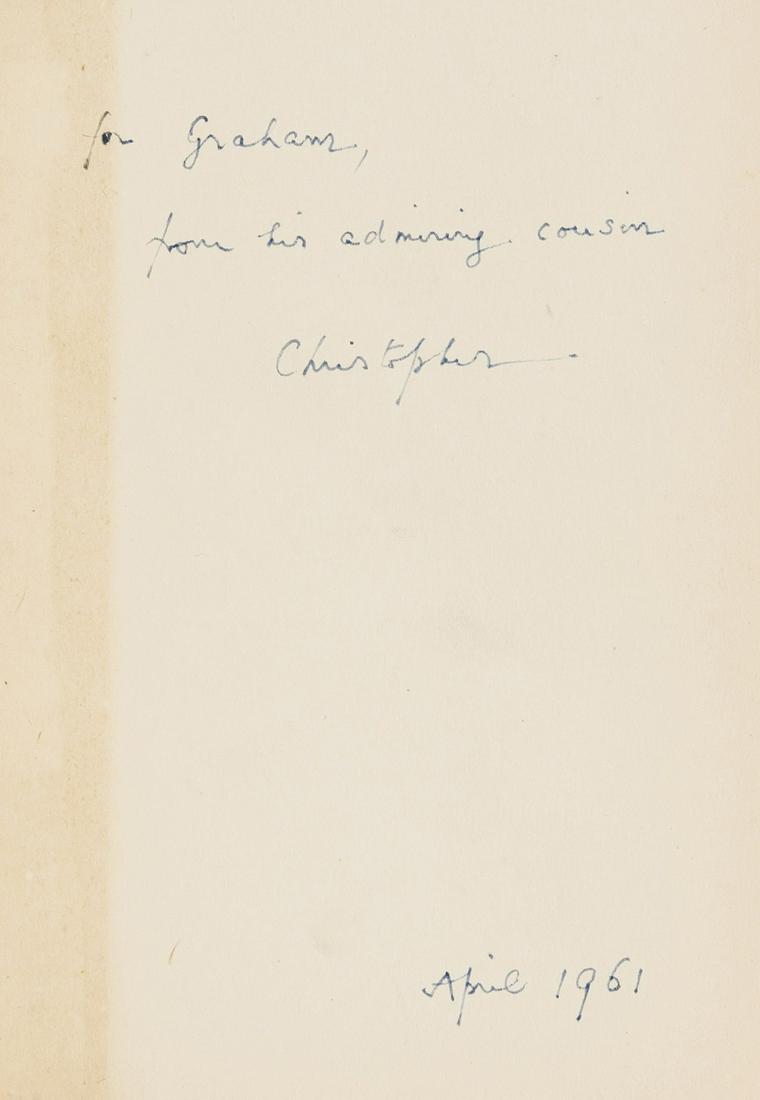 for Graham,
from his admiring cousin
Christopher
April 1961